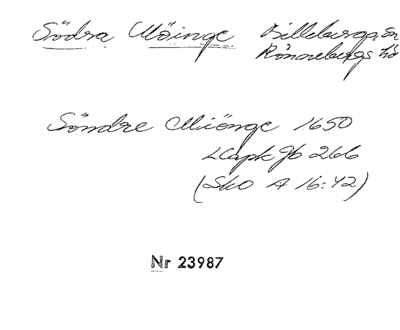 Södra Möinge Billeberga, sn
Rönnebergs hd
Söndre Miönge 1650
LCapk Jb 266
(Sko A 16:42)
Nr 23987